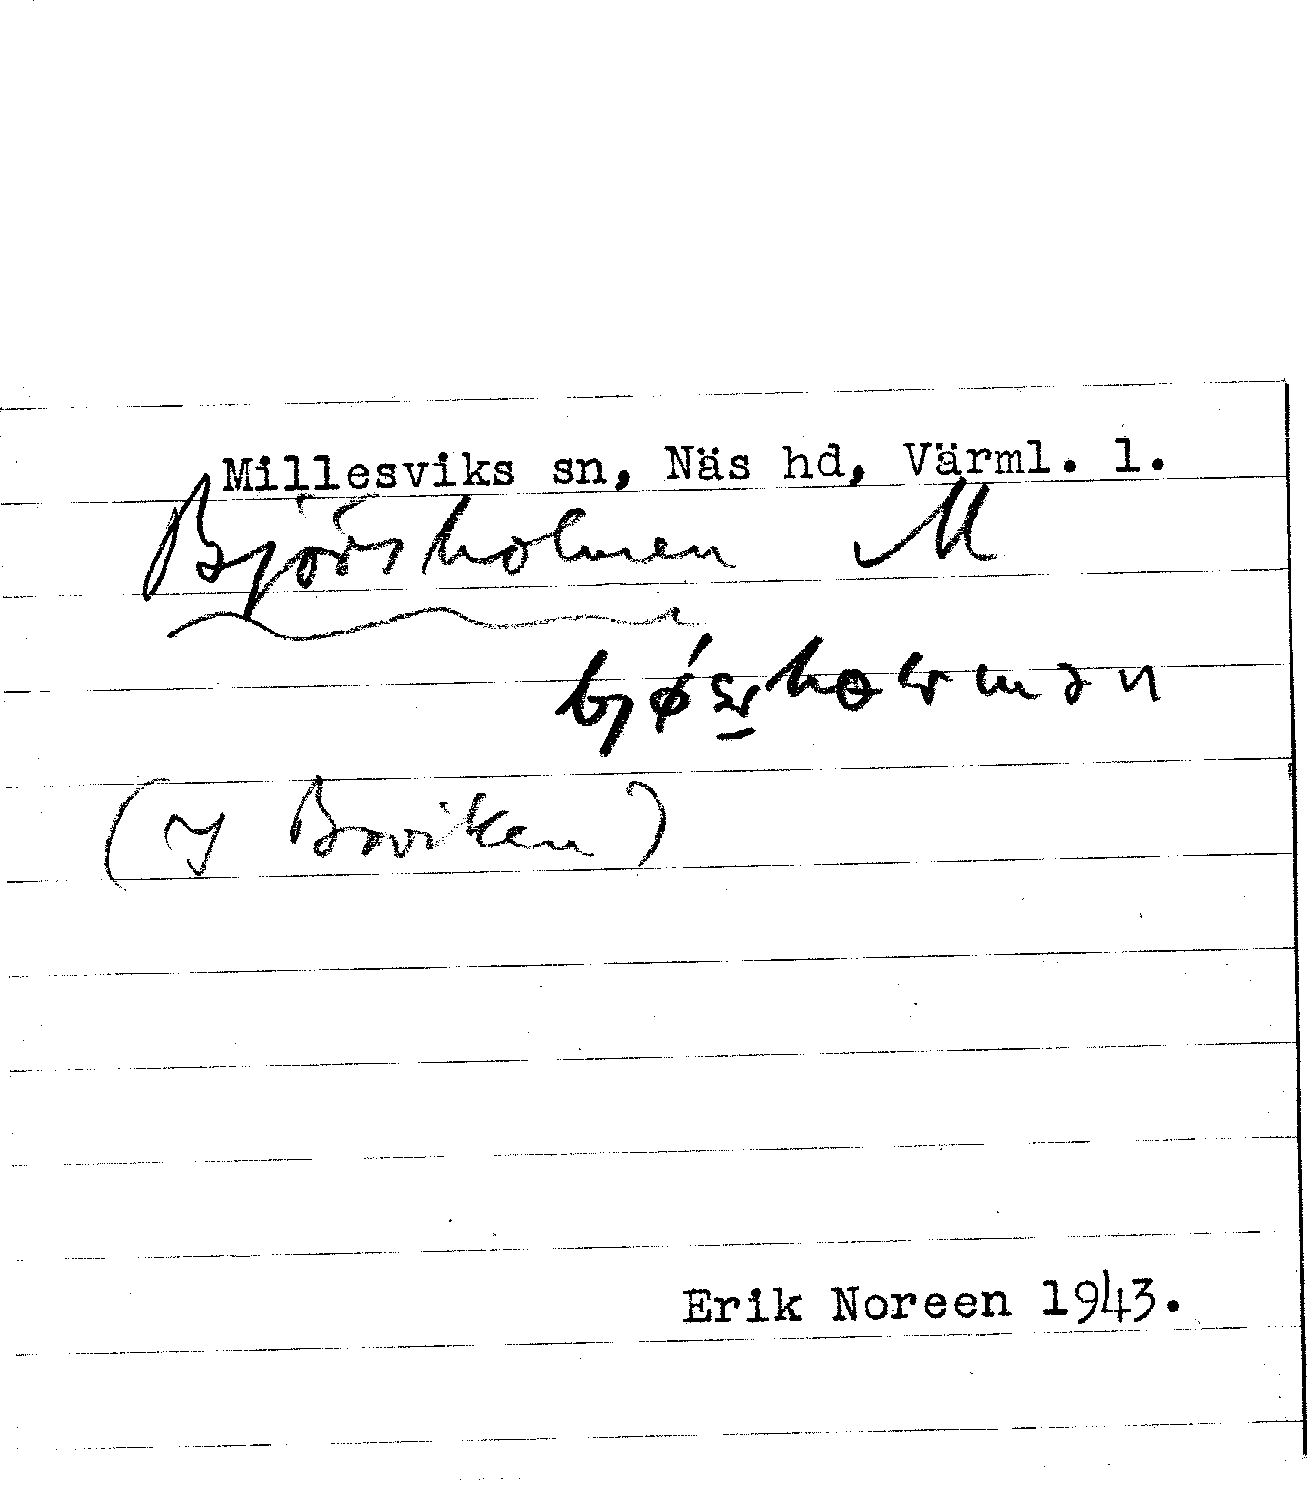 Millesviks sn, Näs hd, Värml. l.
Björsholmen M
(y Boviken)
Erik Noreen 1943.